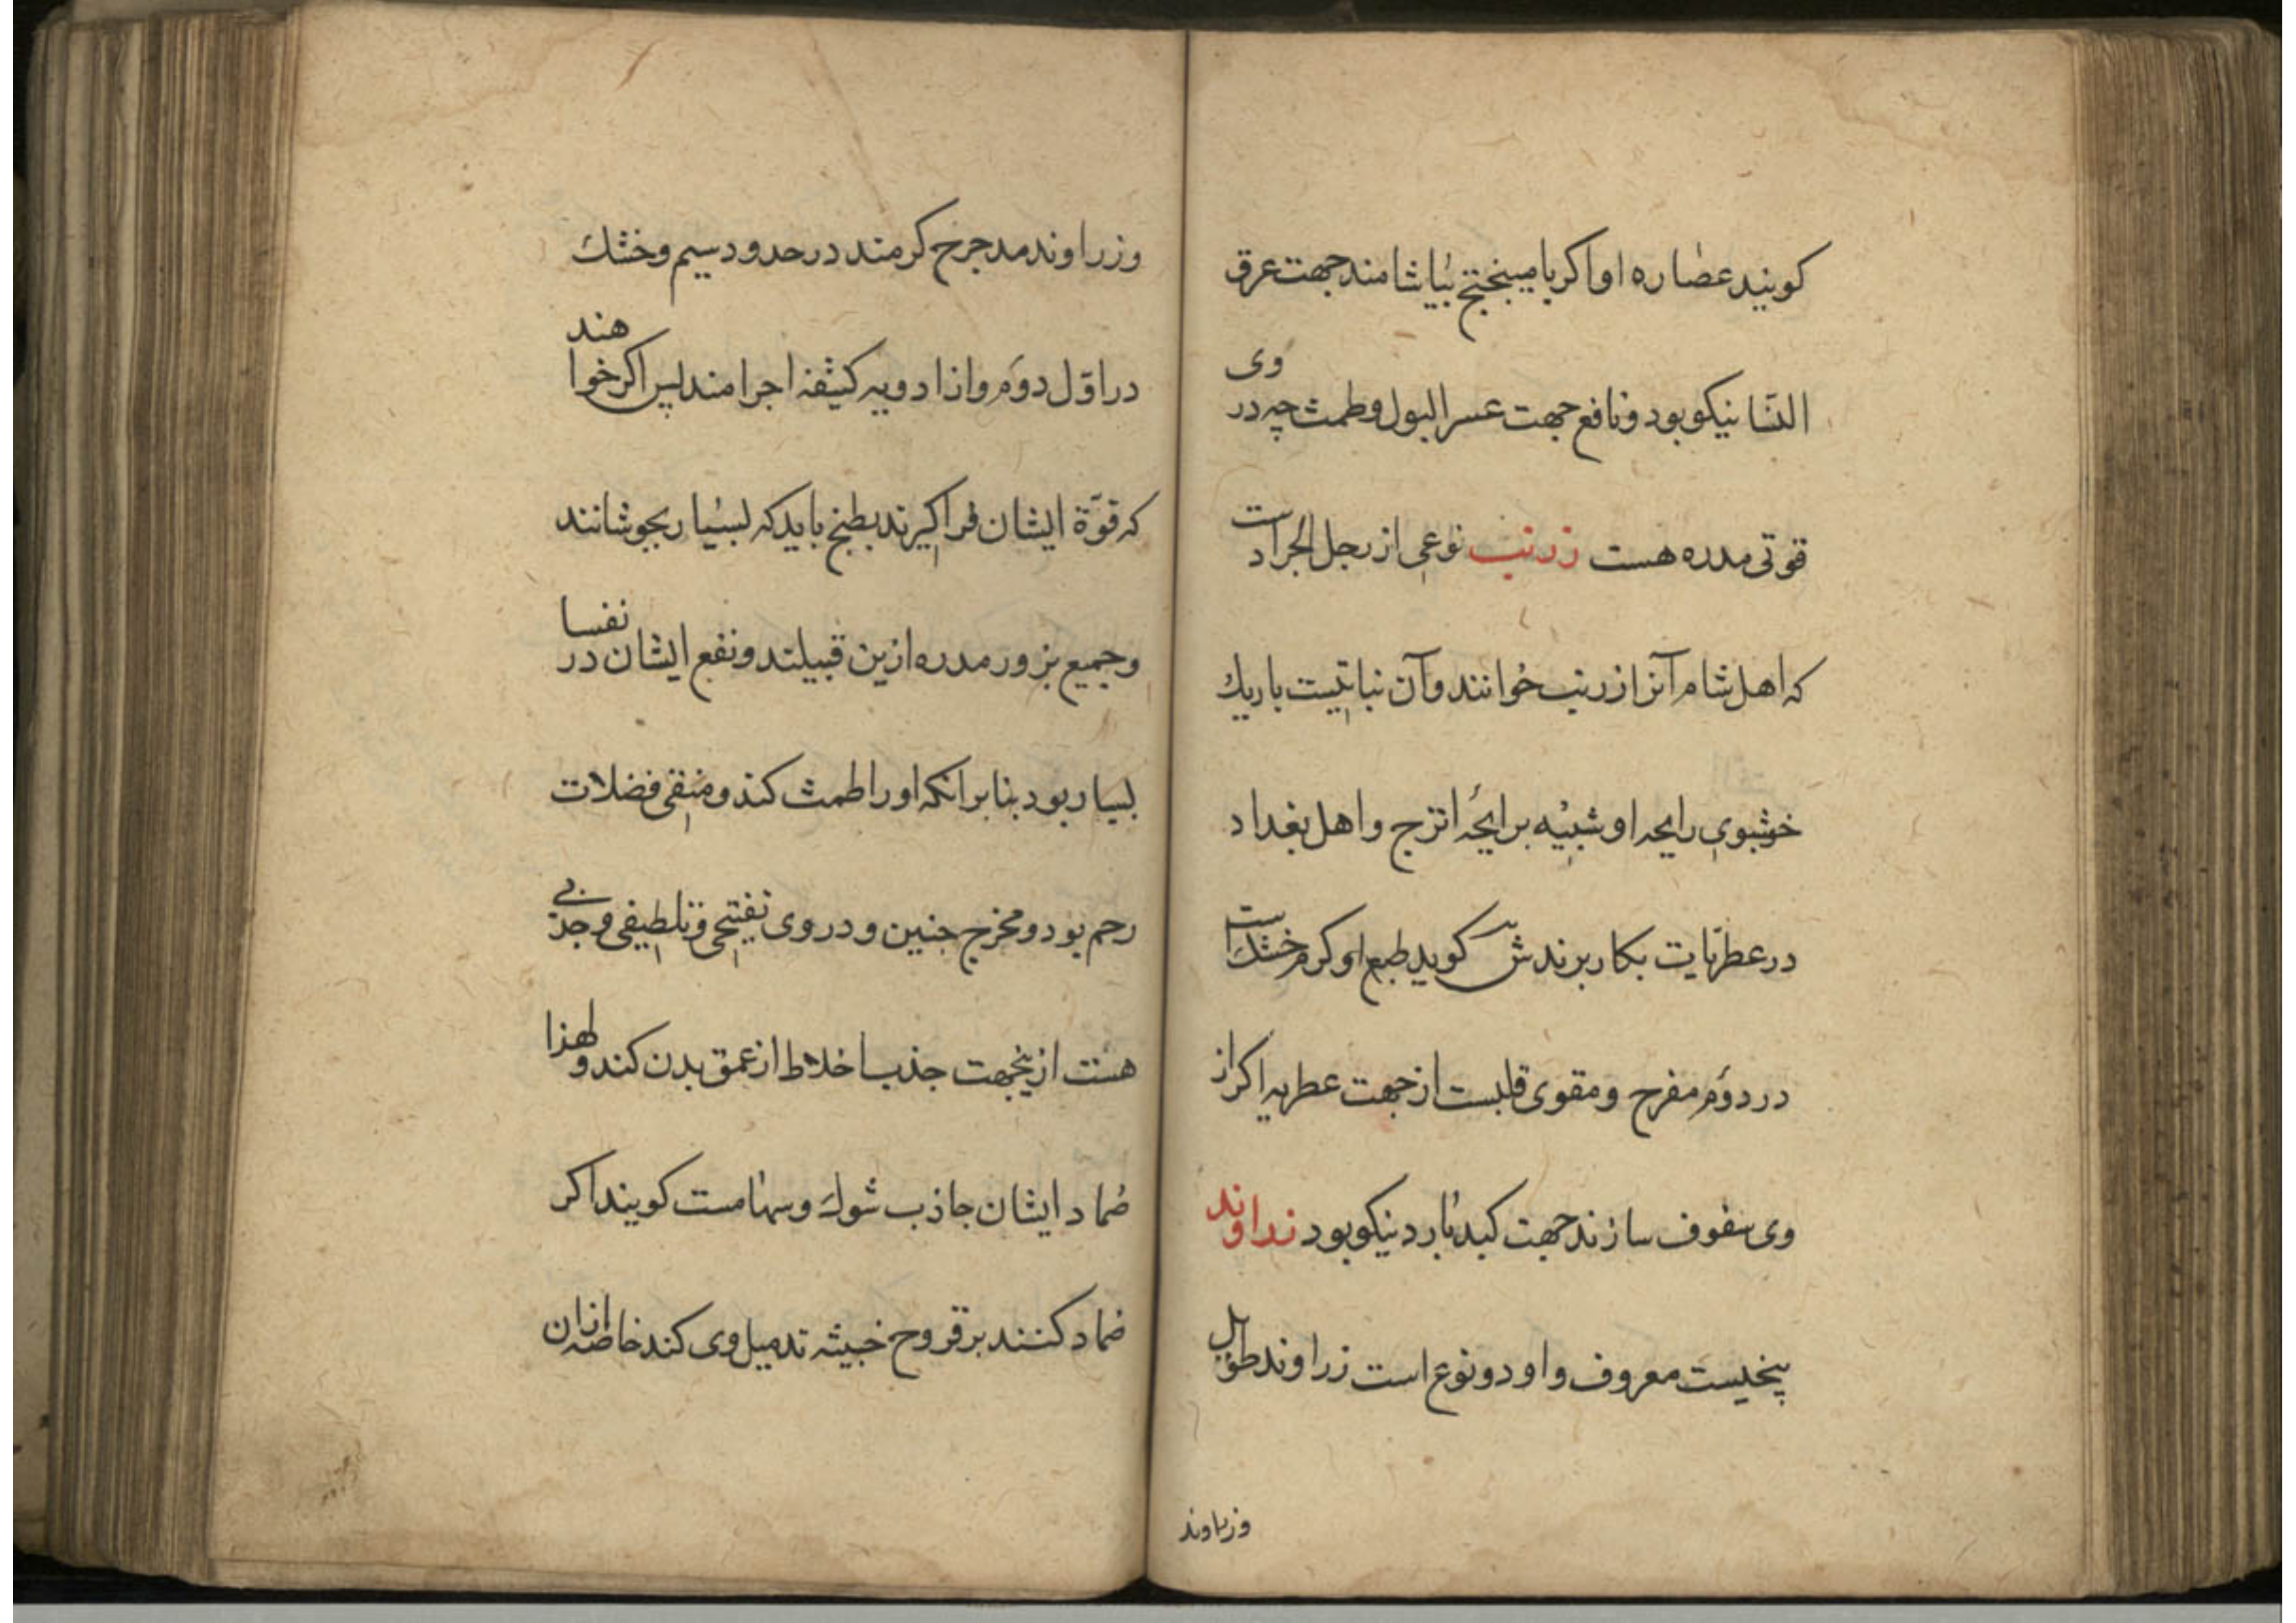 کویند عصاره او اکر بامیبختج بیاشامند جهت عرق
النسا نیکو بود و نافع جهت عسر البول و طمث چه در وی
قوتی مدره هست زرنب نوعی از رجل الجراد است
که اهل شام آنرا زرنب خوانند و آن نباتیست باریك
خوشبوی رایحه او شبیه برایحه اترج و اهل بغداد
در عطریات بکار برند ش کوید طبع او کرم خشك است
در دوم مفرح و مقوی قلبست از جهت عطریه اکر از
وی سفوف سازند جهت کبد بارد نیکو بود زراوند
بیخیست معروف و او دو نوع است زراوند طویل
وزراوند
وزراوند مدحرج کرمند در حدود سیم و خشك
در اول دوم و از ادویه کثیفه اجرامند پس اکر خواهند
که قوة ایشان فراکیرند بطبخ باید که بسیار بجوشانند
و جمیع بزور مدره ازین قبیلند و نفع ایشان در نفسا
بسیار بود بنا بر انکه اورا طمث کند و منقی فضلات
رحم بود و مخرج جنین و در وی تفتیحی و تلطیفی و جذبی
هست ازینجهت جذب اخلاط از عمق بدن کند و لهذا
ضماد ایشان جاذب شوك و سهامست کویند اکر
ضماد کنند بر قروح خبیثه تدمیل وی کند خاصه ازان